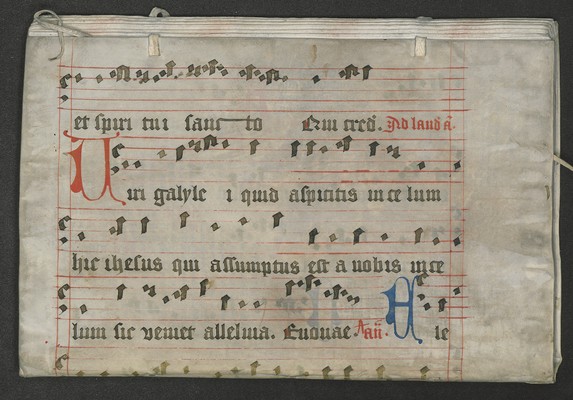 et spiri tui sanc to Qui cred. Ad laud a
Viri galyle i quid aspicitis in ce lum
hic ihesus qui assumptus est a uobis in ce
lum sic veniet alleluia. Euouae. an.